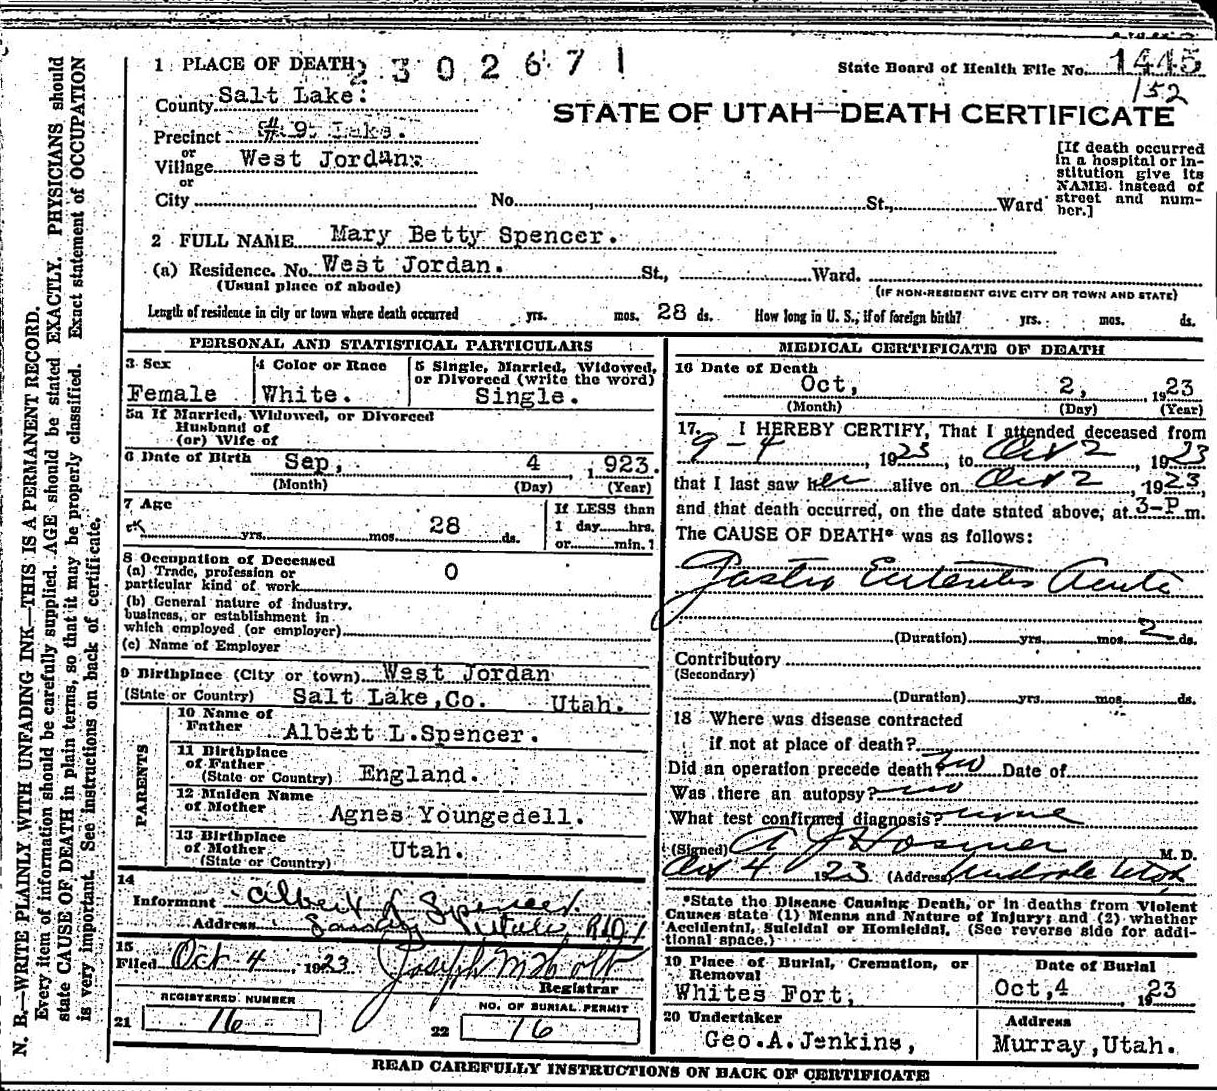 1 PLACE OF DEATH 2 3 0 2 6 7 1
State Board of Health File No. 1445
152
County Salt Lake.
STATE OF UTAH—DEATH CERTIFICATE
Precinct #9. Lake.
or
Village West Jordan.
or
City No. St., Ward
[If death occurred
in a hospital or in-
stitution give its
NAME instead of
street and num-
ber.]
2 FULL NAME Mary Betty Spencer.
(a) Residence. No. West Jordan. St., Ward.
(Usual place of abode)
(IF NON-RESIDENT GIVE CITY OR TOWN AND STATE)
Length of residence in city or town where death occurred yrs. mos. 28 ds. How long in U. S., if of foreign birth? yrs. mos. ds.
PERSONAL AND STATISTICAL PARTICULARS
3 Sex
Female
4 Color or Race
White.
5 Single, Married, Widowed,
or Divorced (write the word)
Single.
5a If Married, Widowed, or Divorced
Husband of
(or) Wife of
6 Date of Birth Sep, 4 ,1923.
(Month) (Day) (Year)
7 Age
yrs. mos. 28 ds.
If LESS than
1 day hrs.
or min.?
8 Occupation of Deceased
(a) Trade, profession or
particular kind of work 0
(b) General nature of industry,
business, or establishment in
which employed (or employer)
(c) Name of Employer
9 Birthplace (City or town) West Jordan
(State or Country) Salt Lake,Co. Utah.
PARENTS
10 Name of
Father Albert L.Spencer.
11 Birthplace
of Father
(State or Country) England.
12 Maiden Name
of Mother Agnes Youngedell.
13 Birthplace
of Mother
(State or Country) Utah.
14
Informant Albert L Spencer.
Address Sandy Utah RD1
15
Filed Oct 4, 1923 Joseph M Holt
Registrar
REGISTERED NUMBER
21 16
NO. OF BURIAL PERMIT
22 16
MEDICAL CERTIFICATE OF DEATH
16 Date of Death
Oct, 2, 1923
(Month) (Day) (Year)
17. I HEREBY CERTIFY, That I attended deceased from
9 - 4, 1923, to Oct 2, 1923
that I last saw her alive on Oct 2, 1923,
and that death occurred, on the date stated above, at 3-P m.
The CAUSE OF DEATH* was as follows:
Gastro Enteritis Acute
(Duration) yrs. mos. 2 ds.
Contributory
(Secondary)
(Duration) yrs. mos. ds.
18 Where was disease contracted
if not at place of death?
Did an operation precede death? no Date of
Was there an autopsy? no
What test confirmed diagnosis? none
(Signed) A J Hosmer M. D.
Oct 4 1923 (Address) Midvale Utah
*State the Disease Causing Death, or in deaths from Violent
Causes state (1) Means and Nature of Injury; and (2) whether
Accidental, Suicidal or Homicidal. (See reverse side for addi-
tional space.)
19 Place of Burial, Cremation, or
Removal
Whites Fort,
Date of Burial
Oct,4 1923
20 Undertaker
Geo.A.Jenkins,
Address
Murray,Utah.
READ CAREFULLY INSTRUCTIONS ON BACK OF CERTIFICATE
N. B.—WRITE PLAINLY WITH UNFADING INK—THIS IS A PERMANENT RECORD.
Every item of information should be carefully supplied. AGE should be stated EXACTLY. PHYSICIANS should
state CAUSE OF DEATH in plain terms, so that it may be properly classified. Exact statement of OCCUPATION
is very important. See instructions on back of certificate.